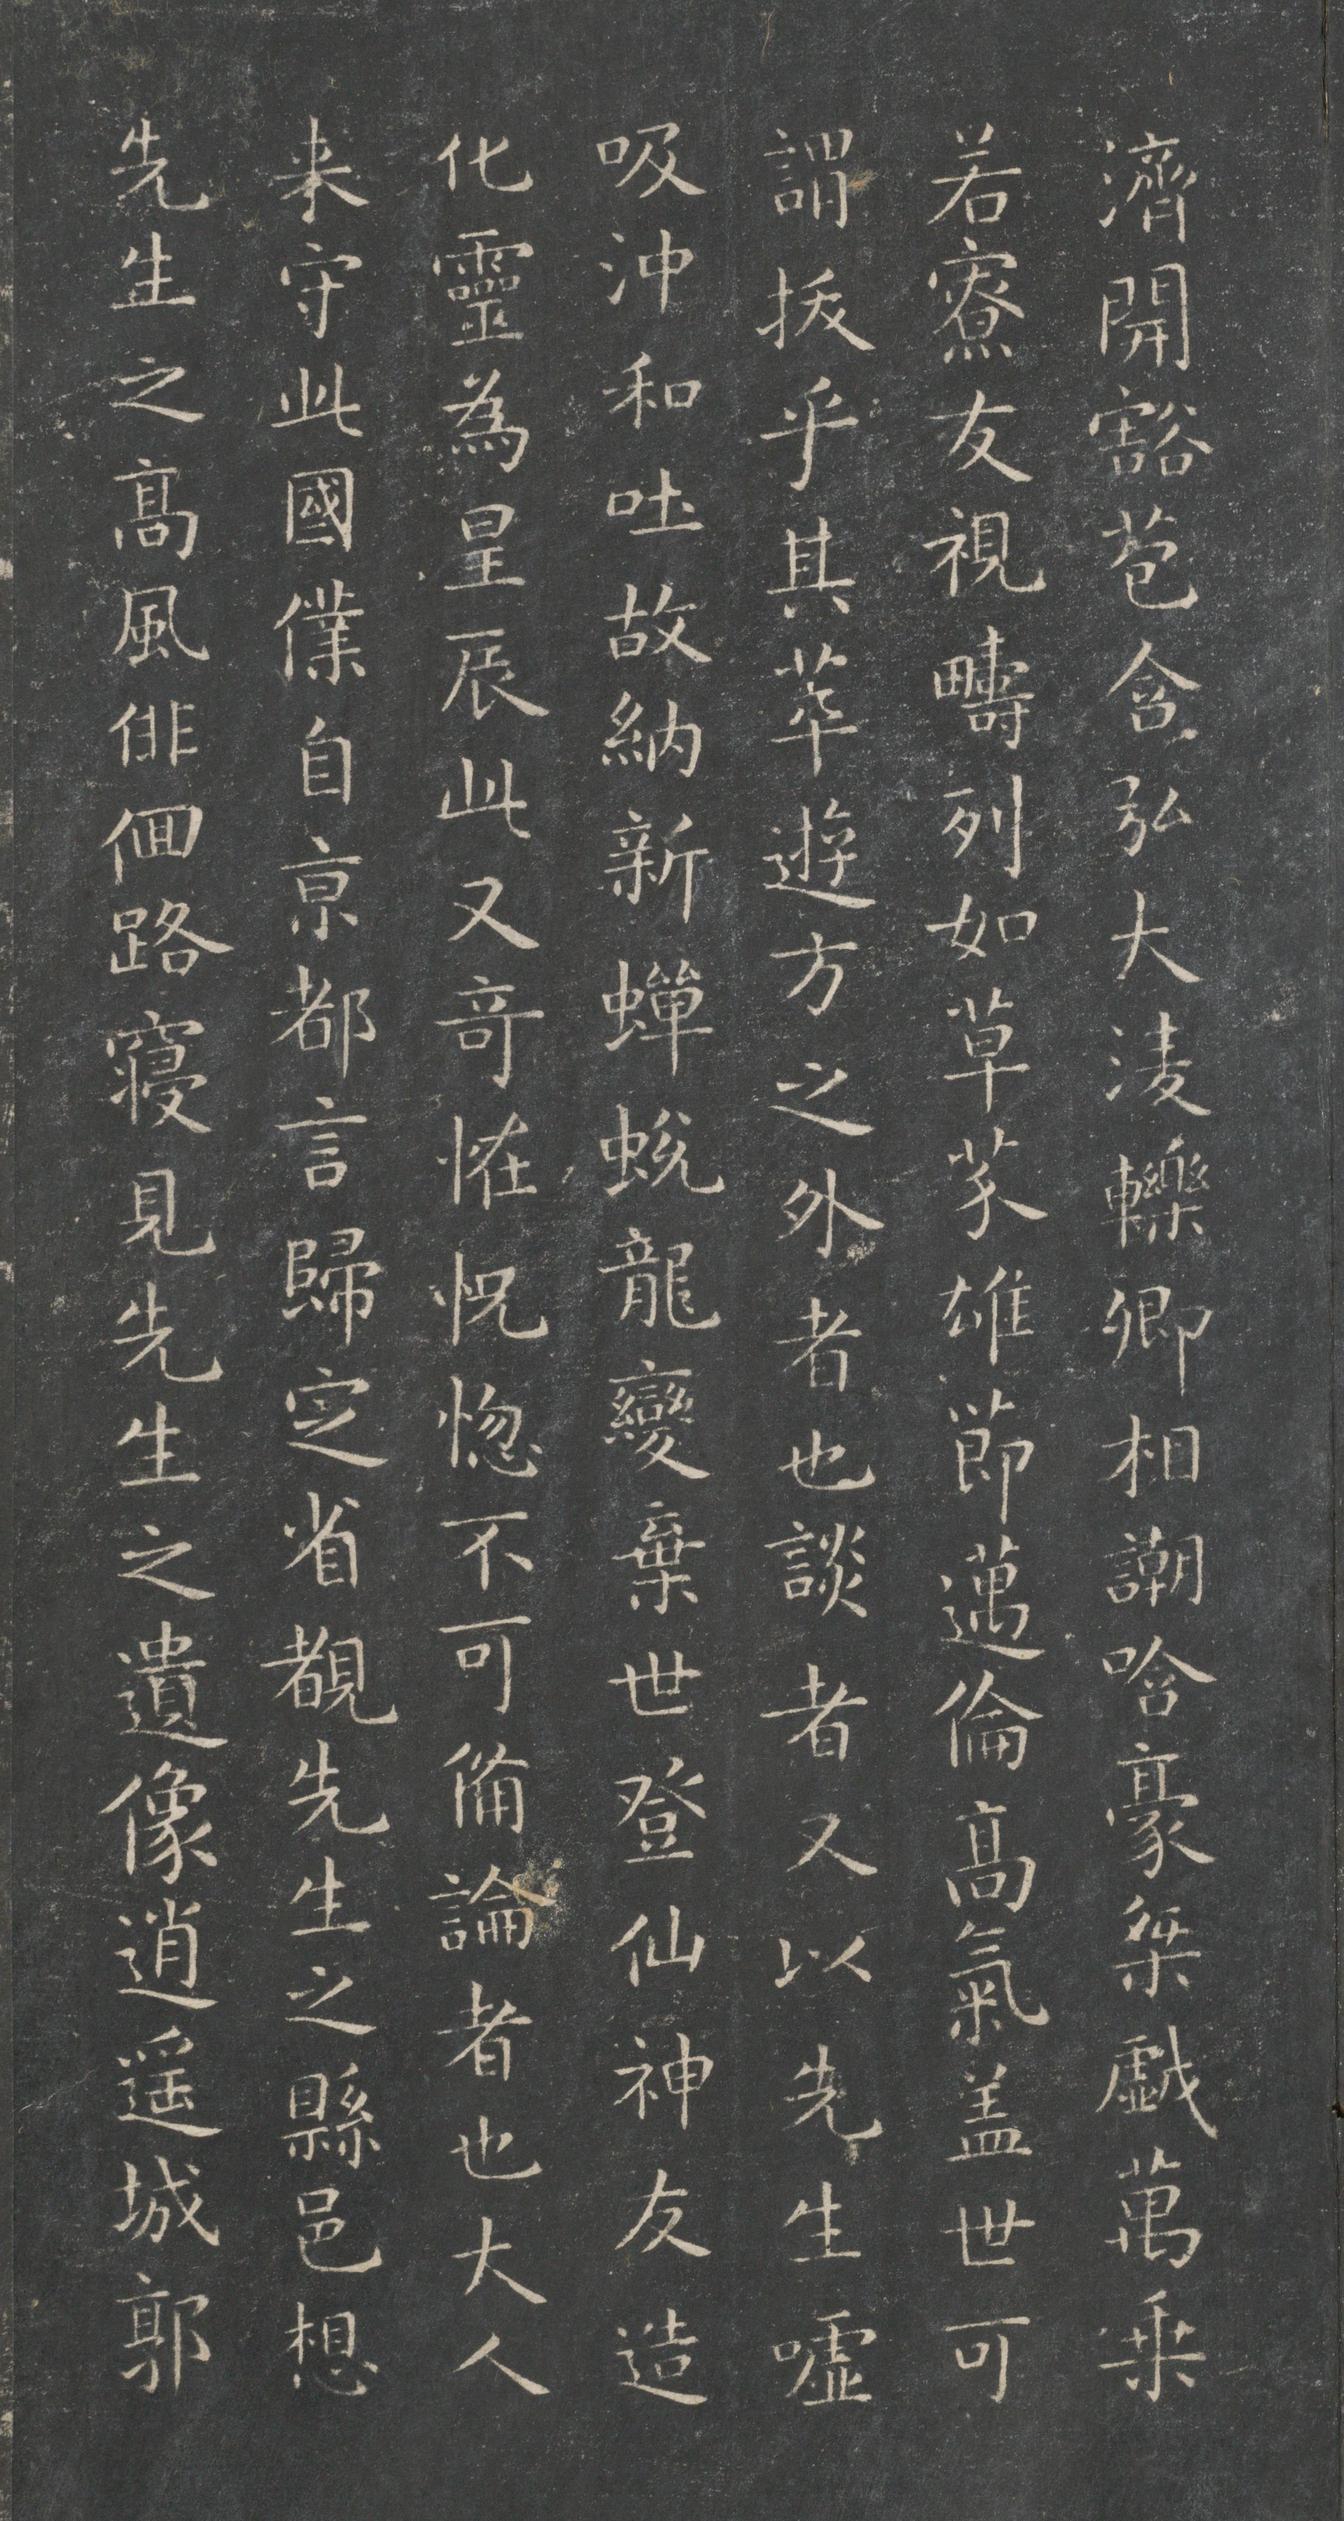 濟開豁苞含弘大淩轢卿相謿哈豪桀戲萬乘
若寮友視疇列如草芥雄節邁倫高氣盖世可
謂拔乎其萃遊方之外者也談者又以先生噓
吸沖和吐故納新蟬蛻龍變棄世登仙神友造
化靈為星辰此又奇恠怳惚不可俻論者也大人
来守此國僕自京都言歸定省覩先生之縣邑想
先生之高風俳佪路寢見先生之遺像逍遥城郭